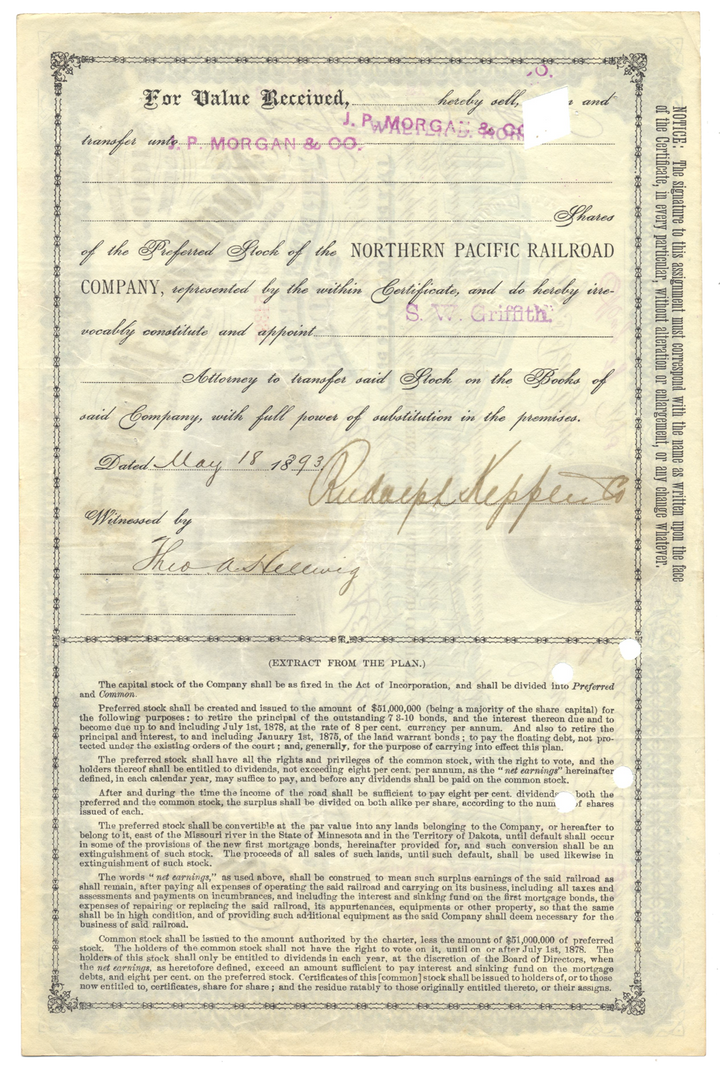 CO.
For Value Received, hereby sell, and
J. P. MORGAN & CO
transfer unto J. P. MORGAN & CO.
Shares
of the Preferred Stock of the NORTHERN PACIFIC RAILROAD
COMPANY, represented by the within Certificate, and do hereby irre-
S. W. Griffith.
vocably constitute and appoint
Attorney to transfer said Stock on the Books of
said Company, with full power of substitution in the premises.
Dated May 18 1893
Rudolph Keppler Co
Witnessed by
Theo A Hellwig
(EXTRACT FROM THE PLAN.)
The capital stock of the Company shall be as fixed in the Act of Incorporation, and shall be divided into Preferred
and Common.
Preferred stock shall be created and issued to the amount of $51,000,000 (being a majority of the share capital) for
the following purposes: to retire the principal of the outstanding 7 3-10 bonds, and the interest thereon due and to
become due up to and including July 1st, 1878, at the rate of 8 per cent. currency per annum. And also to retire the
principal and interest, to and including January 1st, 1875, of the land warrant bonds; to pay the floating debt, not pro-
tected under the existing orders of the court; and, generally, for the purpose of carrying into effect this plan.
The preferred stock shall have all the rights and privileges of the common stock, with the right to vote, and the
holders thereof shall be entitled to dividends, not exceeding eight per cent. per annum, as the "net earnings" hereinafter
defined, in each calendar year, may suffice to pay, and before any dividends shall be paid on the common stock.
After and during the time the income of the road shall be sufficient to pay eight per cent. dividends both the
preferred and the common stock, the surplus shall be divided on both alike per share, according to the num of shares
issued of each.
The preferred stock shall be convertible at the par value into any lands belonging to the Company, or hereafter to
belong to it, east of the Missouri river in the State of Minnesota and in the Territory of Dakota, until default shall occur
in some of the provisions of the new first mortgage bonds, hereinafter provided for, and such conversion shall be an
extinguishment of such stock. The proceeds of all sales of such lands, until such default, shall be used likewise in
extinguishment of such stock.
The words "net earnings," as used above, shall be construed to mean such surplus earnings of the said railroad as
shall remain, after paying all expenses of operating the said railroad and carrying on its business, including all taxes and
assessments and payments on incumbrances, and including the interest and sinking fund on the first mortgage bonds, the
expenses of repairing or replacing the said railroad, its appurtenances, equipments or other property, so that the same
shall be in high condition, and of providing such additional equipment as the said Company shall deem necessary for the
business of said railroad.
Common stock shall be issued to the amount authorized by the charter, less the amount of $51,000,000 of preferred
stock. The holders of the common stock shall not have the right to vote on it, until on or after July 1st, 1878. The
holders of this stock shall only be entitled to dividends in each year, at the discretion of the Board of Directors, when
the net earnings, as heretofore defined, exceed an amount sufficient to pay interest and sinking fund on the mortgage
debts, and eight per cent. on the preferred stock. Certificates of this [common] stock shall be issued to holders of, or to those
now entitled to, certificates, share for share; and the residue ratably to those originally entitled thereto, or their assigns.
NOTICE: The signature to this assignment must correspond with the name as written upon the face
of the Certificate, in every particular, without alteration or enlargement, or any change whatever.